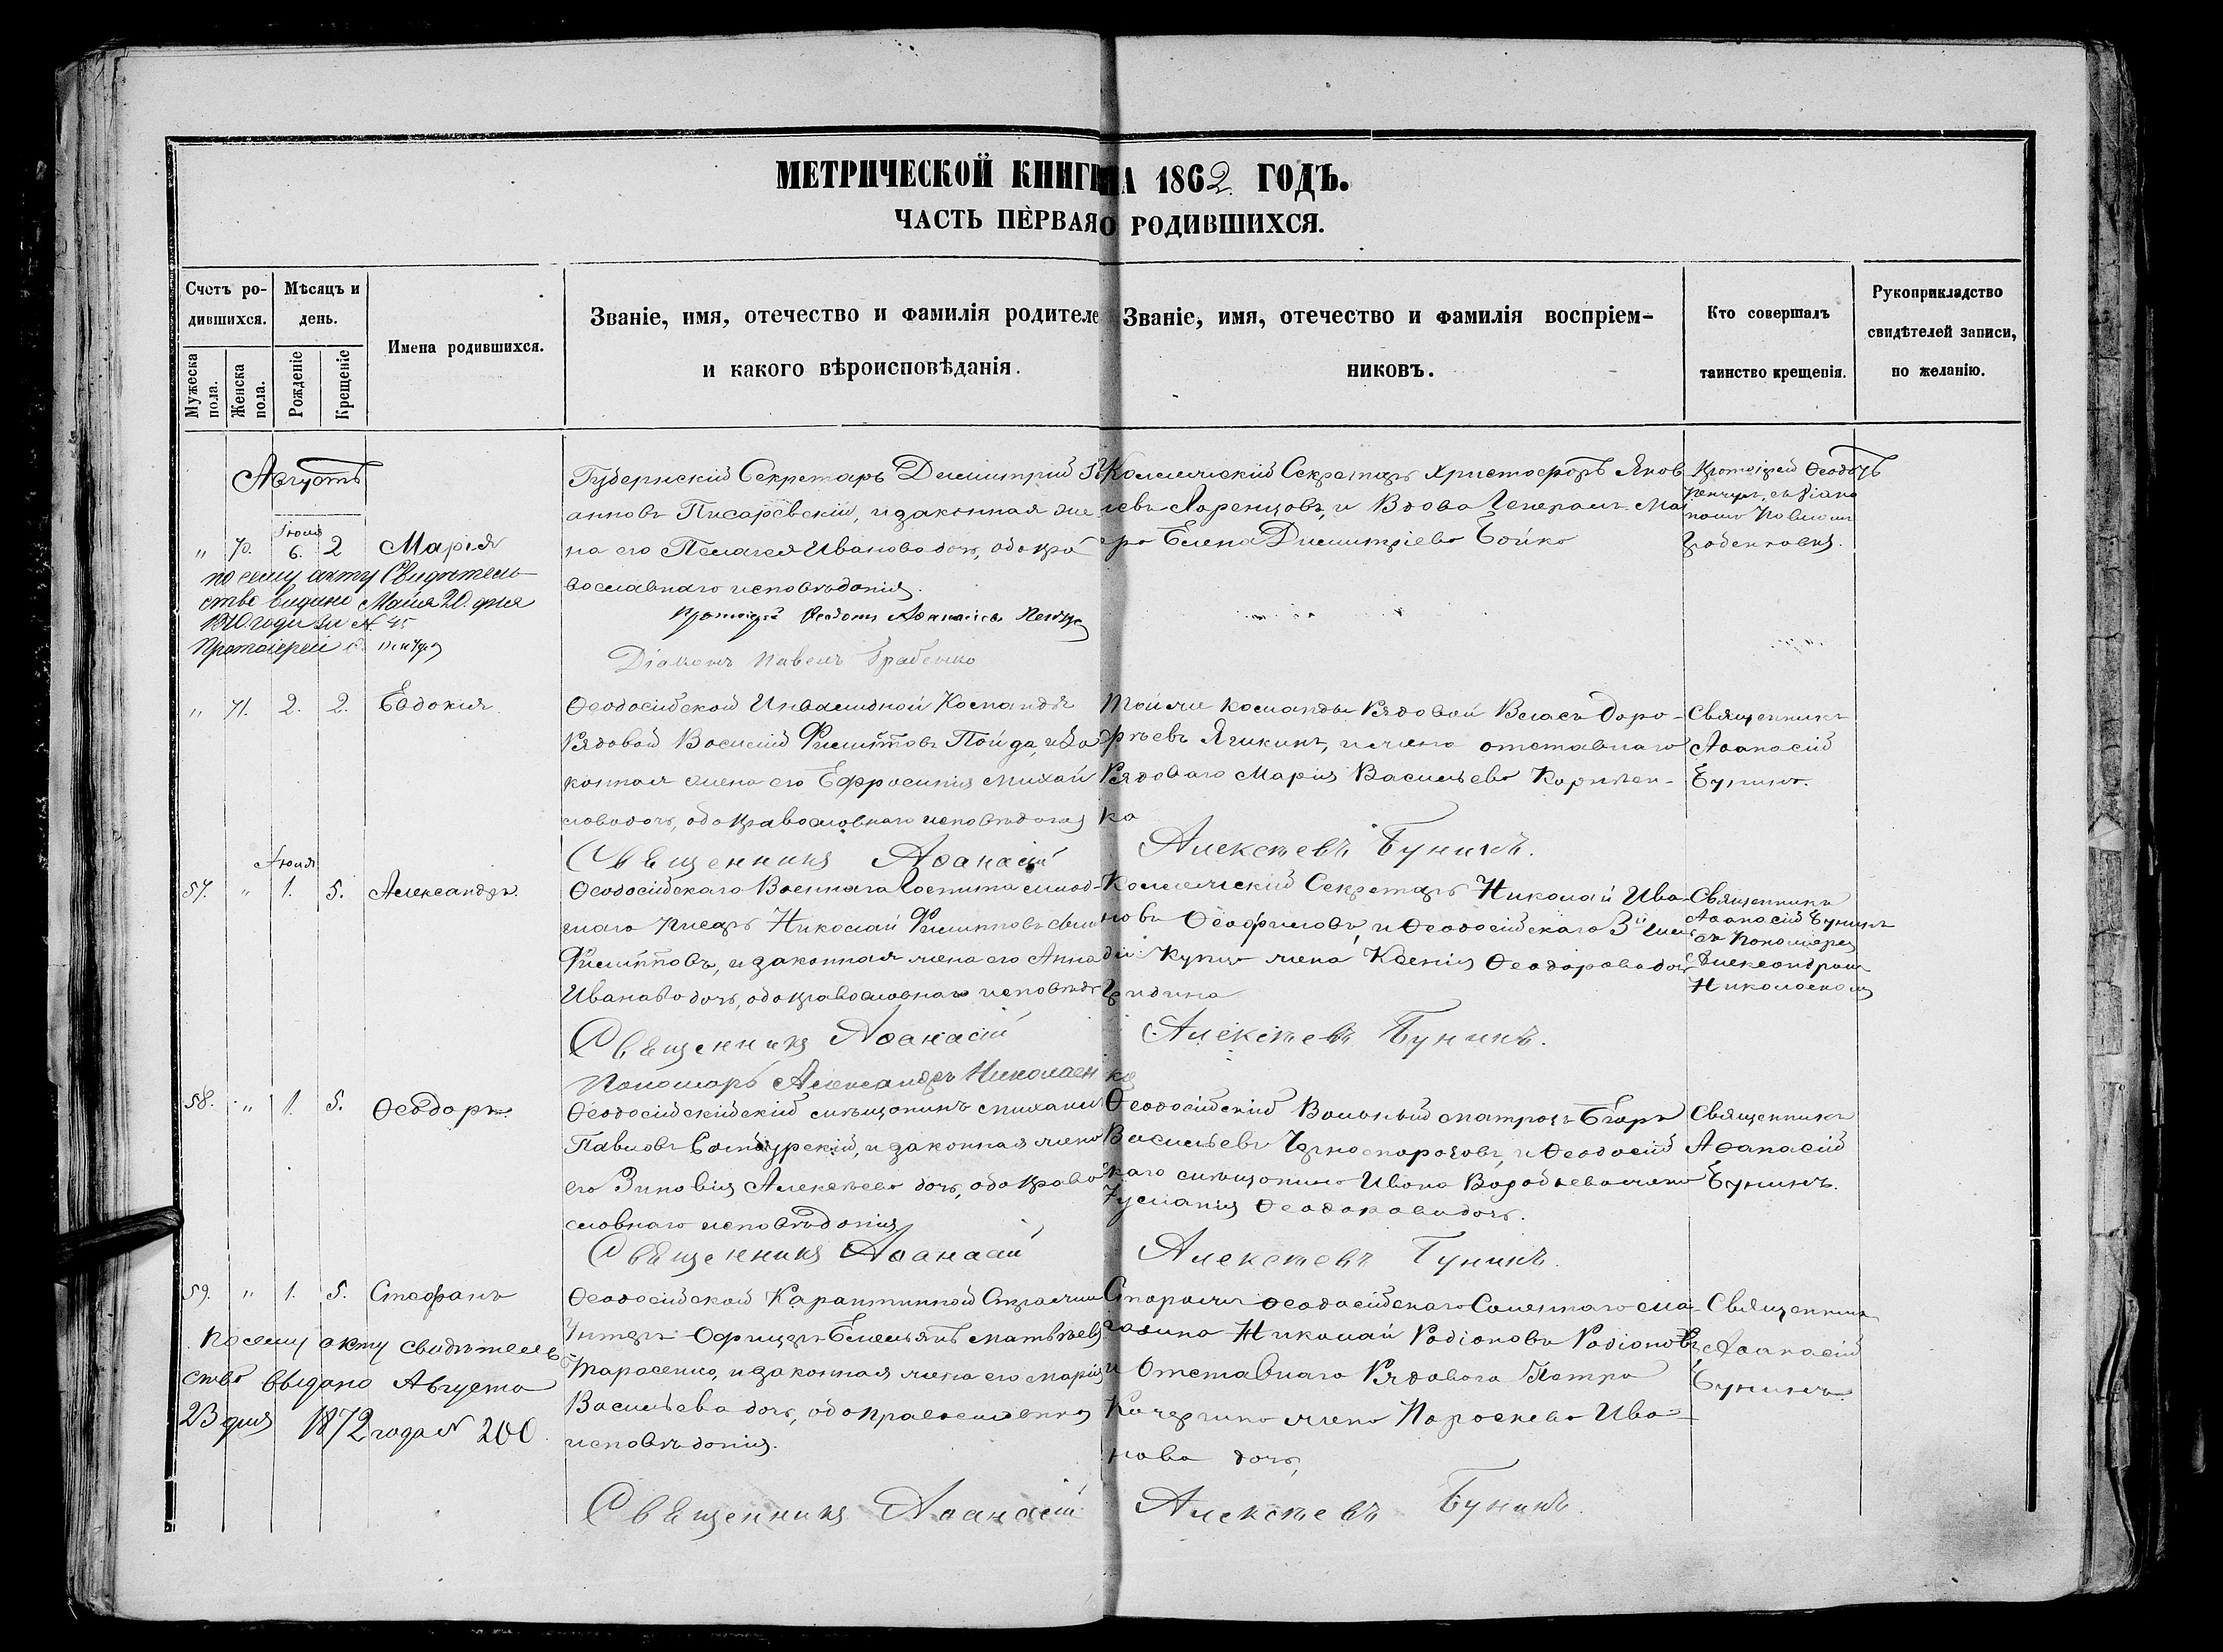 МЕТРИЧЕСКОЙ КНИГИ НА 1862 ГОДЪ.
ЧАСТЬ ПЕРВАЯ О РОДИВШИХСЯ.
Счетъ ро-
дившихся.
Мужеска пола.
Женска пола.
Мѣсяцъ и
день.
Рожденіе
Крещеніе
Имена родившихся.
Званіе, имя, отечество и фамилія родителе
и какого вѣроисповѣданія.
Званіе, имя, отечество и фамилія воспріем-
никовъ.
Кто совершалъ
таинство крещенія.
Рукоприкладство
свидѣтелей записи,
по желанію.
Августъ
Іюля
" 70. 6. 2 Марія
по сему акту Свидѣтель-
ство выдано Маія 20. дня
Протоіерей
Губернскій Секретарь Димитрій
анновъ Писаревскій, и законная же
на его Пелагея Иванова дочь, оба пра
вославнаго исповѣданія.
Діаконъ Павелъ Грабенко
Коллежскій Секретарь Христофоръ Яков
левъ Лоренцовъ, и Вдова Генералъ Ма
ра Елена Димитріева Бойко
Протоіерей Ѳеодотъ
" 71. 2. 2. Евдокія
Ѳеодосійской Инвалидной Команды
Рядовой Василій Филиповъ Пойда, и за
конная жена его Ефросинія Михай
лова дочь, оба православнаго исповѣданія
Священникъ Аѳанасій
Той же команды Рядовой Власъ Доро-
фѣевъ Ягикинъ, и жена отставнаго
Рядоваго Марія Васильева Корніен-
ко
Алексѣевъ Бунинъ.
Священникъ
Аѳанасій
Бунинъ.
Іюля
57. " 1. 5. Александръ
Ѳеодосійскаго Военнаго Госпиталя млад-
шаго писарь Николай Филиповъ сынъ
Филиповъ, и законная жена его Анна
Иванова дочь, оба православнаго исповѣд
Священникъ Аѳанасій
Пономарь Александръ Николаен
Коллежскій Секретарь Николай Ива
новъ Ѳеофиловъ, и Ѳеодосійскаго 3й гиль
діи Купца жена Ксенія Ѳеодорова дочь
Алексѣевъ Бунинъ.
ко
Священникъ
Аѳанасій Бунинъ
съ Пономаремъ
Александромъ
Николаенком
58. " 1. 5. Ѳеодоръ.
Ѳеодосійскійскій мѣщанинъ Михаилъ
его Зиновія Алексѣева дочь, оба право
славнаго исповѣданія
Священникъ Аѳанасій
Ѳеодосійскій Вольный матросъ Егоръ
Васильевъ Черноспороговъ, и Ѳеодосій
скаго мѣщанина Ивана Воробьева жена
Іуліанія Ѳеодорова дочь.
Алексѣевъ Бунинъ.
Священникъ
Аѳанасій
Бунинъ.
59. " 1. 5. Стефанъ
По сему акту свидѣтель
ство выдано Августа
23 дня 1872 года № 200.
Ѳеодосійской Карантинной Стражи
Унтеръ-Офицеръ Емельянъ Матвѣевъ
Тарасенко, и законная жена его Марія
Васильева дочь, оба православнаго
исповѣданія.
Священникъ Аѳанасій
Сторожъ Ѳеодосійскаго Соленнаго ма-
газина Николай Родіоновъ Родіоновъ,
и Отставнаго Рядоваго Петра
Кочергина жена Параскева Ива-
нова дочь,
Алексѣевъ Бунинъ.
Священникъ
Аѳанасій
Бунинъ